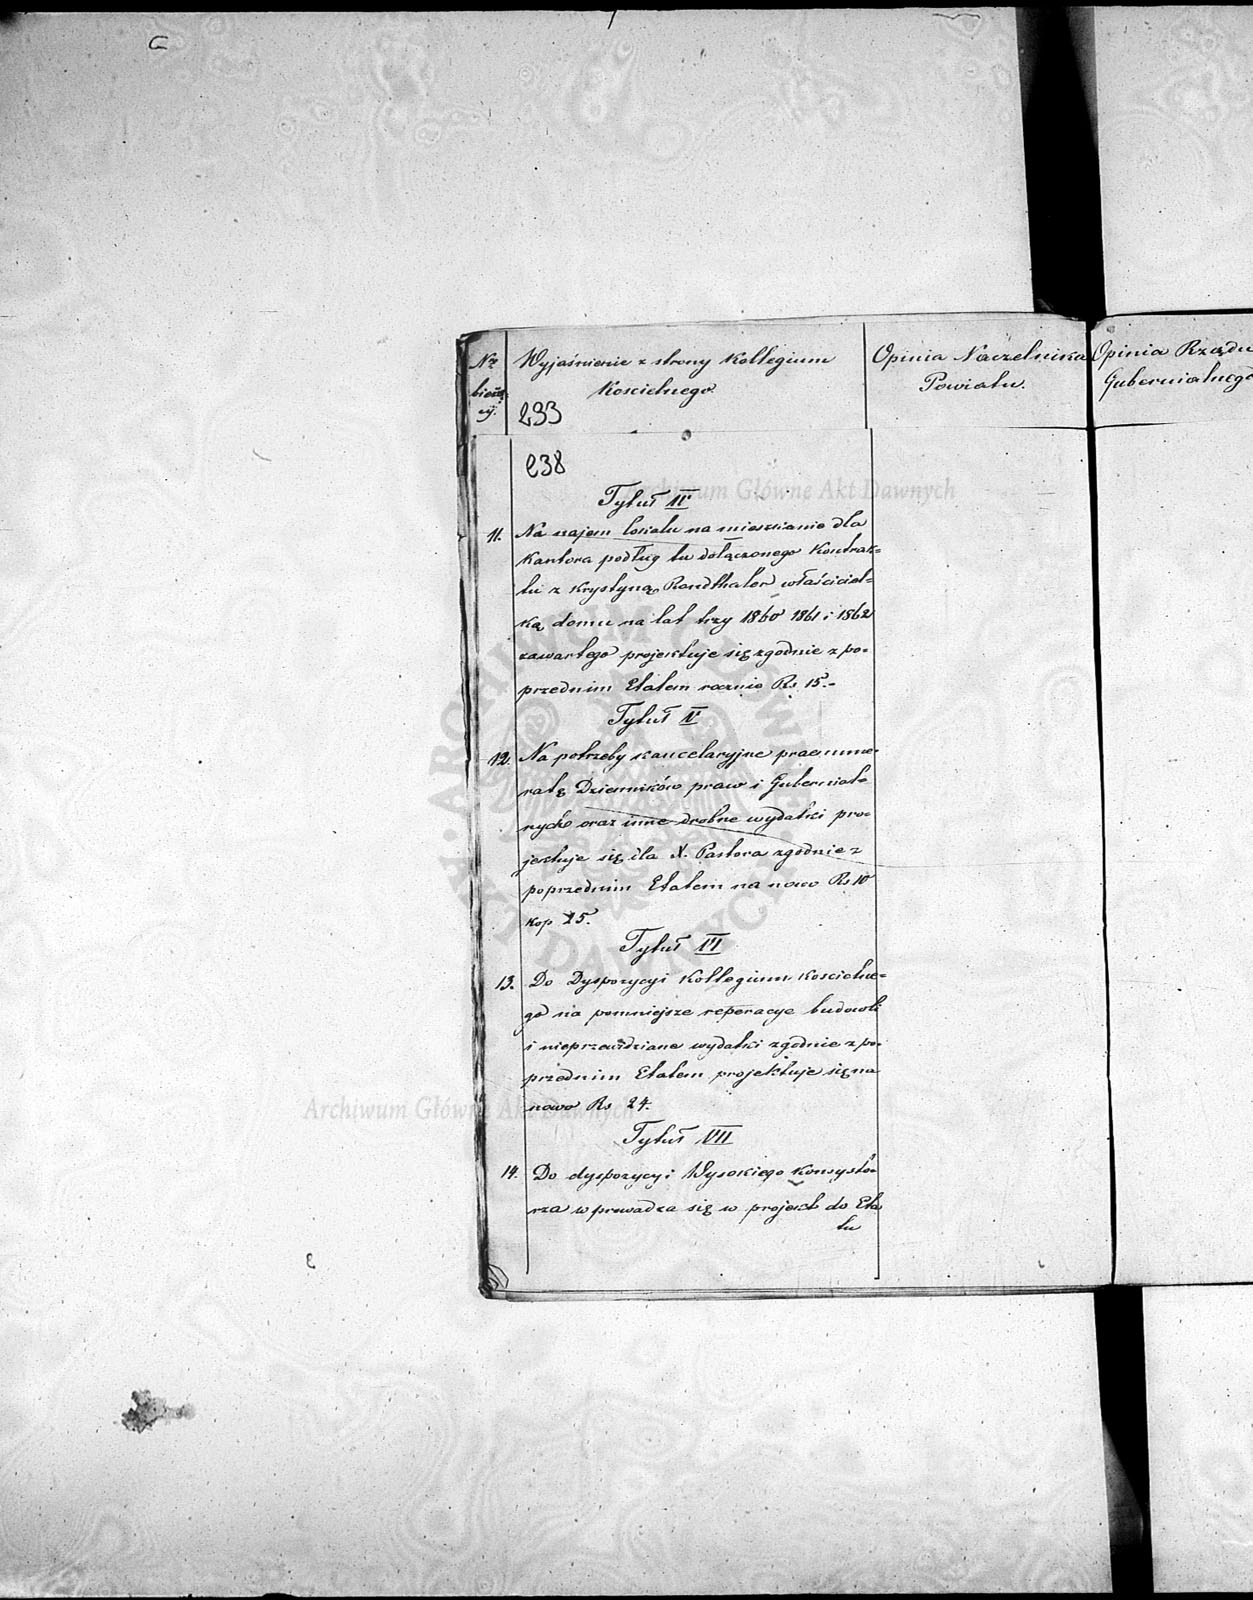 Nr bieżą cÿ.
Wyjaśnienie z strony Kollegium
Kościelnego
Opinia Naczelnika
Powiatu.
Opinia Rządu
Gubernialnego
233
238
Tytuł IV
11. Na najem lokalu na mieszkanie dla
Kantora podług tu dołączonego Kontrak=
tu z Krystyną Randthaler właściciel=
ką domu na lat trzy 1860 1861 i 1862
zawartego projektuje się zgodnie z po=
przednim Etatem rocznie Rs 15.-
Tytuł V
12. Na potrzeby kancelaryjne praenume=
ratę Dzienników praw i Gubernial=
nych oraz inne drobne wydatki pro=
jektuje się dla X. Pastora zgodnie z
poprzednim Etatem na nowo Rs 10
kop 25.
Tytuł VI
13. Do Dyspozycyi Kollegium Kościelne=
go na pomniejsze reperacye budowli
i nieprzewidziane wydatki zgodnie z po=
przednim Etatem projektuje się na
nowo Rs 24.
Tytuł VII
14. Do dyspozycyi Wysokiego Konsysto=
rza wprowadza się w projekt do Eta
tu
Archiwum Główne Akt Dawnych
Archiwum Główne Akt Dawnych
ARCHIWUM GŁÓWNE AKT DAWNYCH